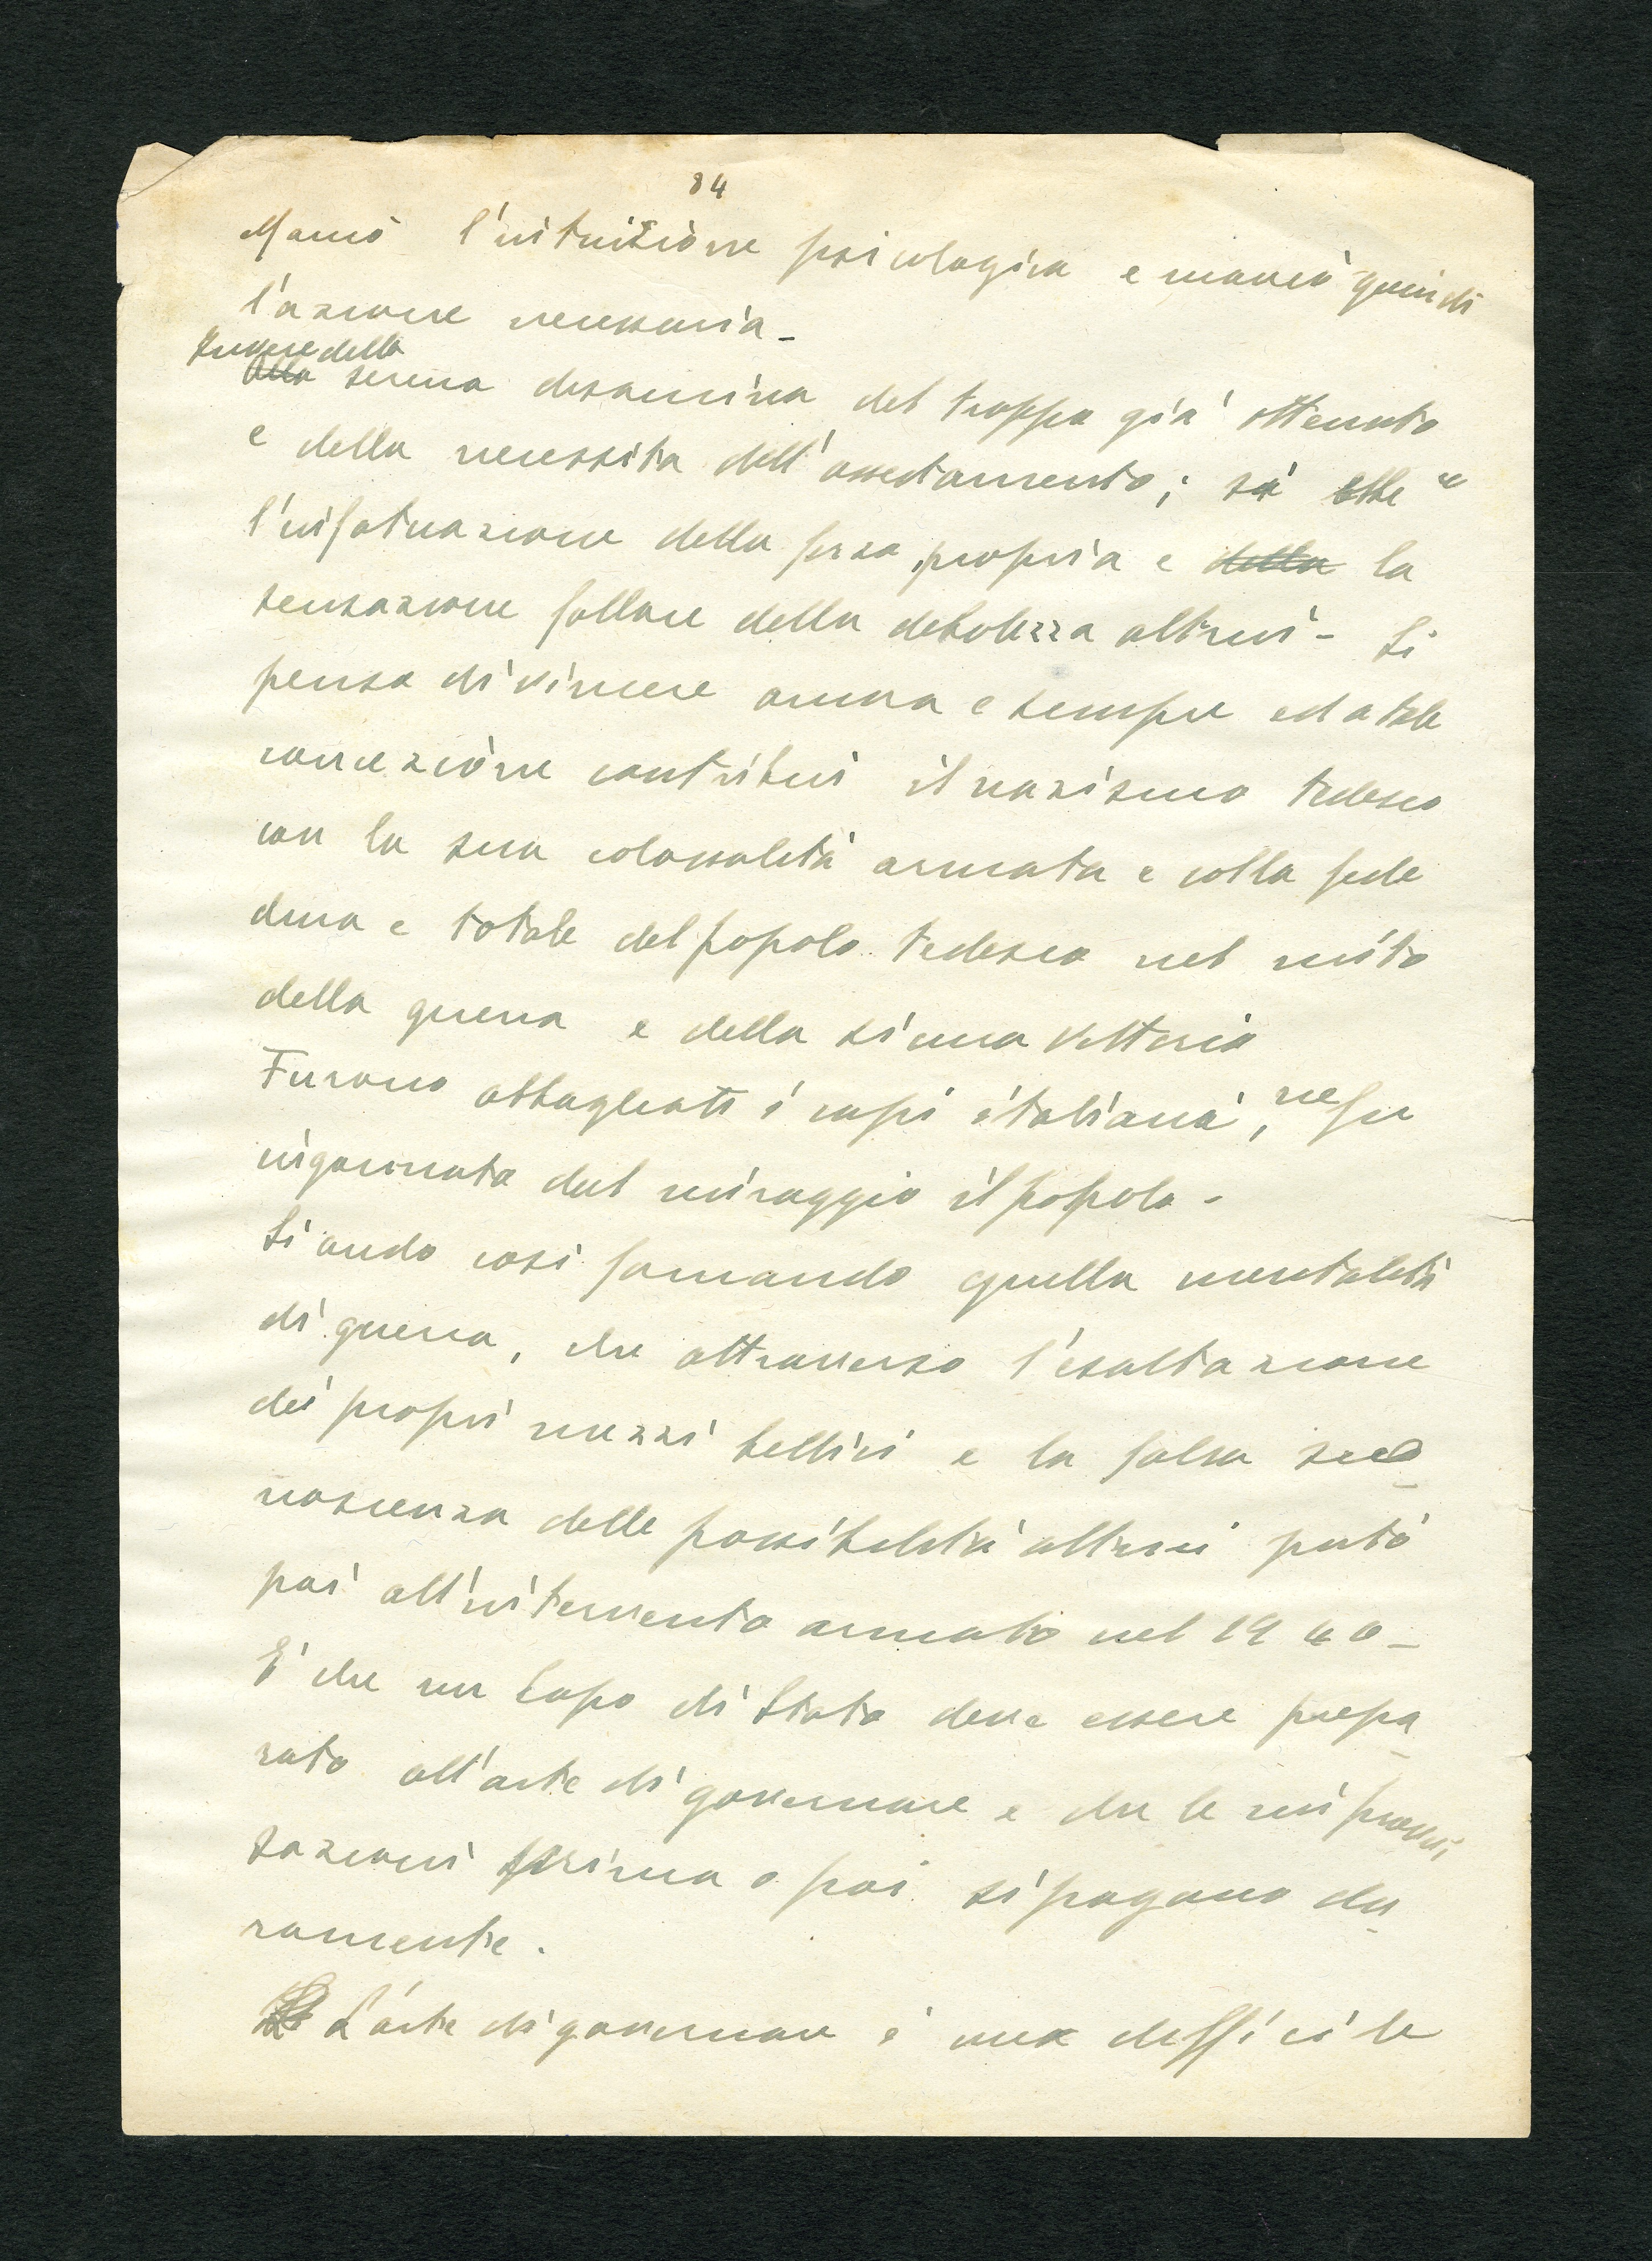 84
Mancò l'intuizione psicologica e mancò quindi
l'azione necessaria -
Invece della
Alla serena desamina del troppo già ottenuto
e della necessita dell'assestamento; si ebbe
l'infatuazione della forza propria e della la
sensazione fallace della debolezza altrui - Si
pensa di vincere ancora e sempre ed a tale
concezione contribui il nazismo tedesco
con la sua colossalità armata e colla fede
dura e totale del popolo tedesco nel mito
della guerra e della sicura vittoria
Furono abbagliati i capi italiani, ne fu
ingannato dal miraggio il popolo -
Si ando cosi formando quella mentalità
di guerra, che attraverso l'esaltazione
dei propri mezzi bellici e la falsa
noscenza delle possibilità altrui portò
poi all'intervento armato nel 1940 -
E' che un Capo di Stato deve essere prepa
rato all'arte di governare e che le improvvi
sazioni prima o poi si pagano du
ramente.
L'arte di governare è una difficile